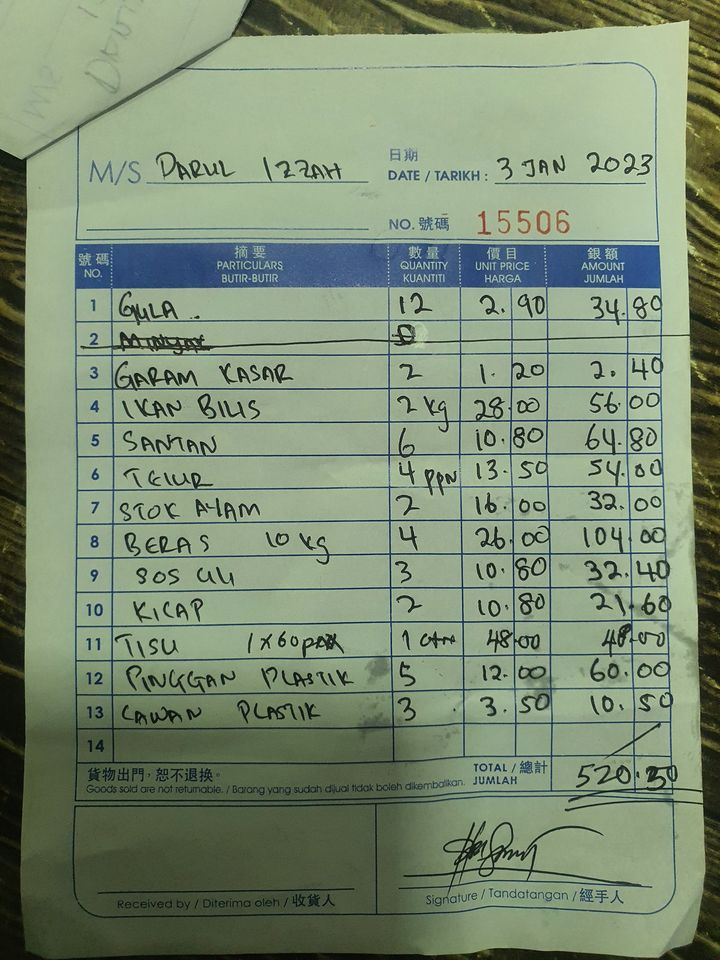 M/S DARUL IZZAH
日期
DATE / TARIKH : 3 JAN 2023
NO. 號碼 15506
號碼 摘要 數量 價目 銀額
NO. PARTICULARS QUANTITY UNIT PRICE AMOUNT
BUTIR-BUTIR KUANTITI HARGA JUMLAH
1 GULA 12 2.90 34.80
2
3 GARAM KASAR 2 1.20 2.40
4 IKAN BILIS 2 kg 28.00 56.00
5 SANTAN 6 10.80 64.80
6 TELUR 4 ppn 13.50 54.00
7 STOK AYAM 2 16.00 32.00
8 BERAS 10 kg 4 26.00 104.00
9 SOS CILI 3 10.80 32.40
10 KICAP 2 10.80 21.60
11 TISU 1x60 1 ctn 48.00 48.00
12 PINGGAN PLASTIK 5 12.00 60.00
13 CAWAN PLASTIK 3 3.50 10.50
14
貨物出門，恕不退換。 TOTAL / 總計 520.50
Goods sold are not returnable. / Barang yang sudah dijual tidak boleh dikembalikan. JUMLAH
Received by / Diterima oleh / 收貨人 Signature / Tandatangan / 經手人